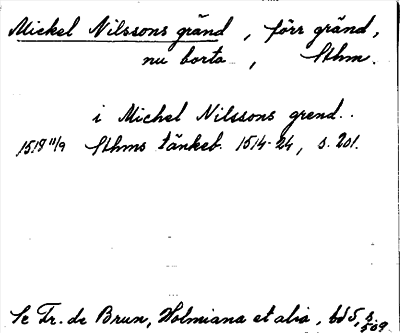 Mickel Nilssons gränd, förr gränd,
nu borta, Sthm.
i Michel Nilssons grend..
1518 11/9 Sthms tänkeb. 1514-24, s. 201.
Se Fr. de Brun, Holmiana et alia, bd 5, s. 509